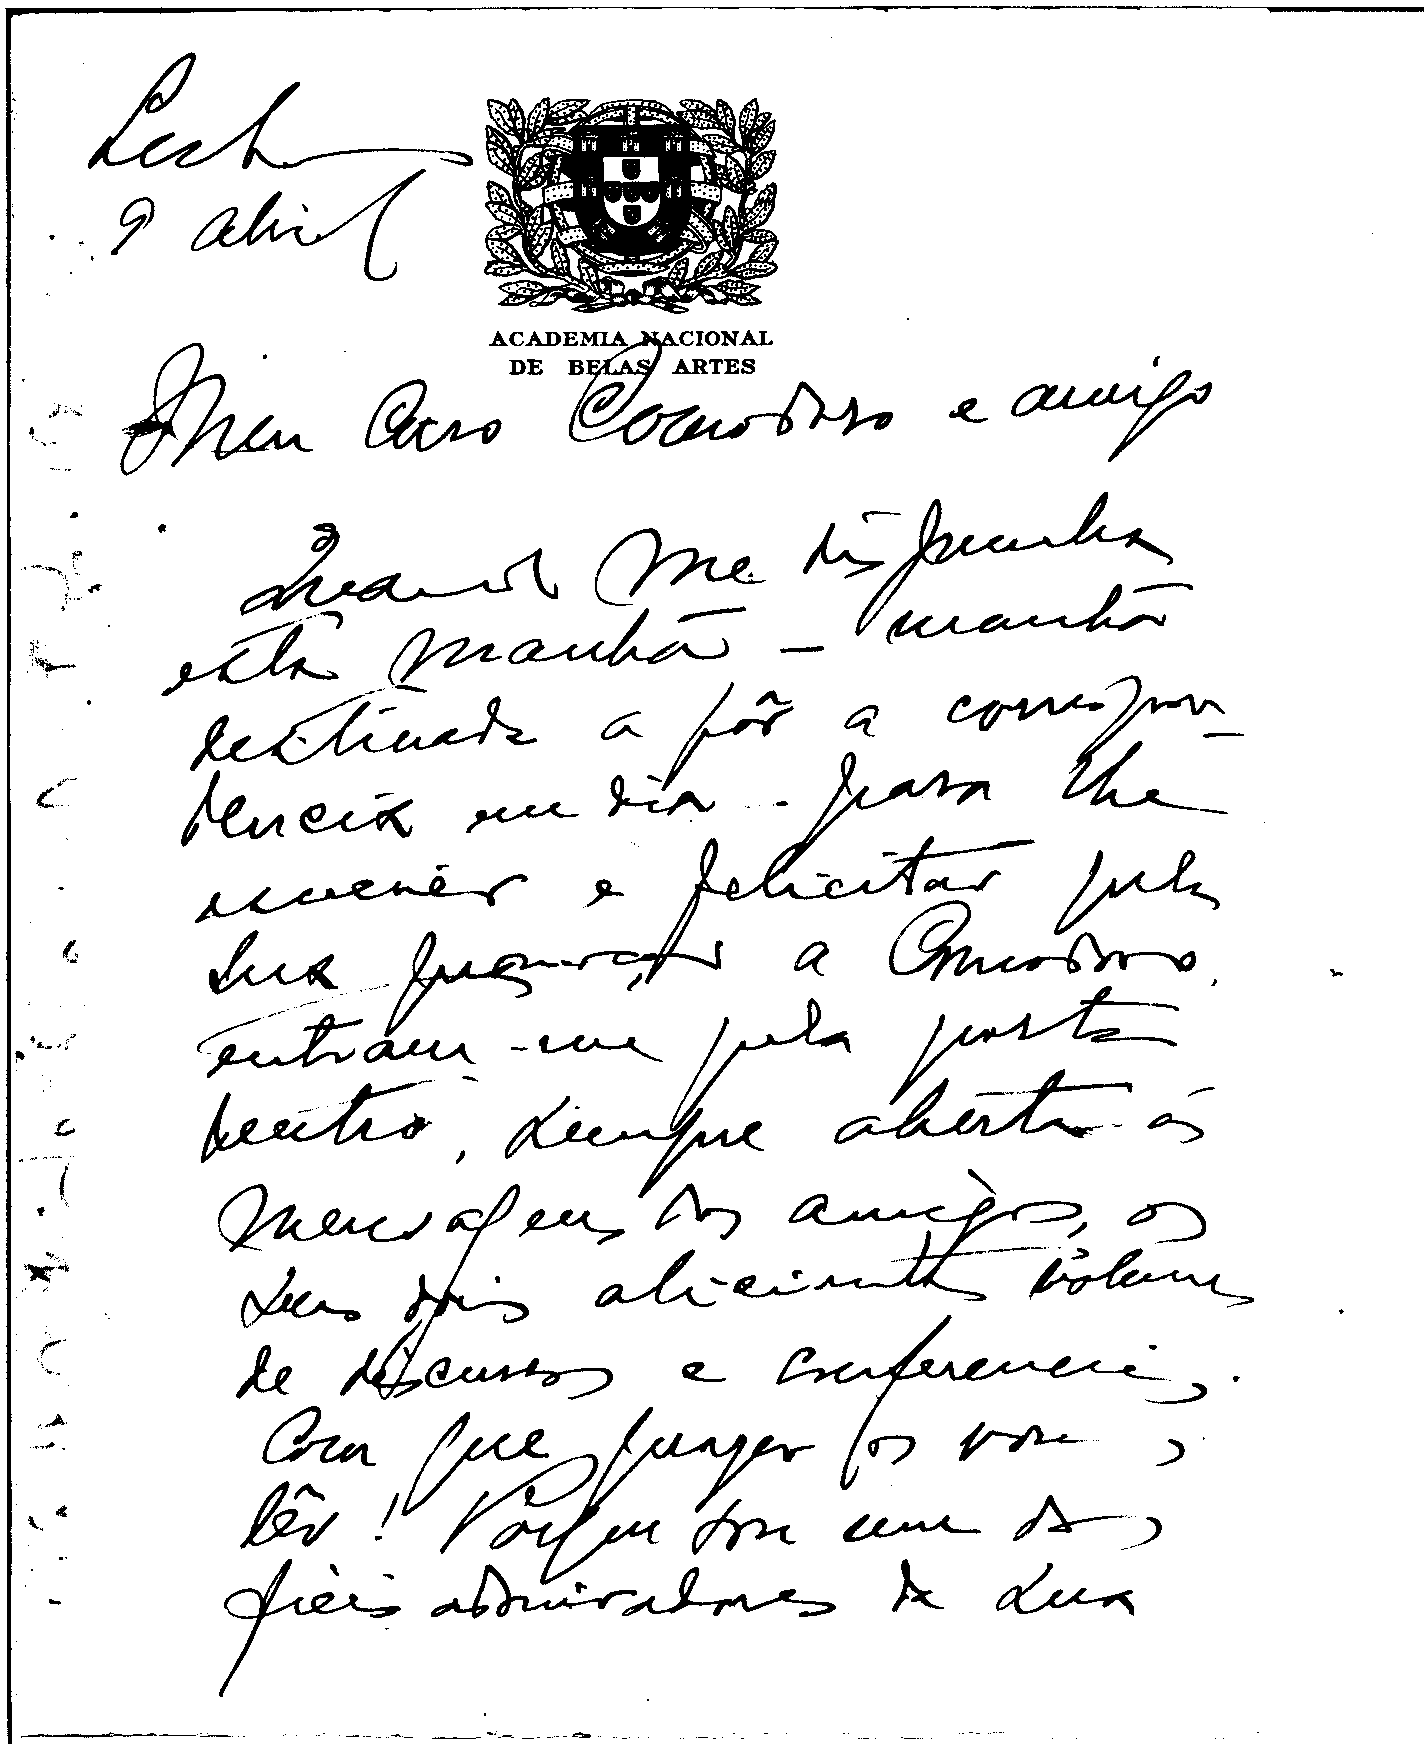 9 abril
ACADEMIA NACIONAL
DE BELAS ARTES
Meu caro Comodoro e amigo
Quando me dispunha
esta manhã – manhã
destinada a pôr a correspon-
dencia em dia - para lhe
escrever e felicitar pela
sua promoção a Comodoro,
entram-me pela porta
dentro, sempre aberta ás
mensagens dos amigos, os
seus dois aliciantes volumes
de discursos e conferencias.
Com que prazer os vou
lêr! Porque sou um dos
fieis admiradores da sua